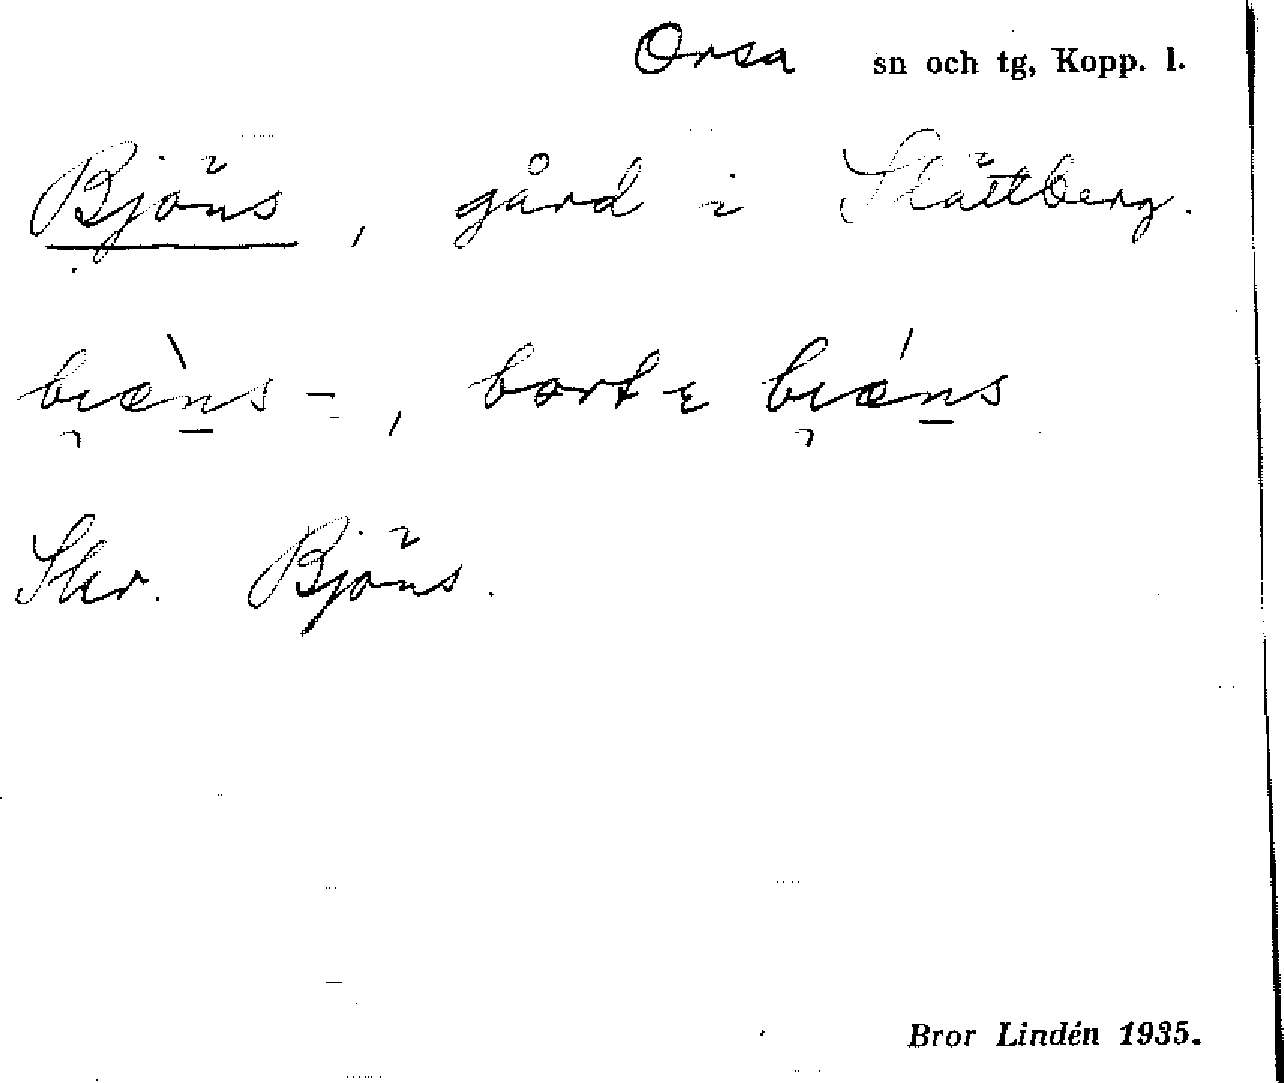 Orsa sn och tg, Kopp. l.
Bjöns, gård i Slättberg.
bi̯æ̀n̲s-, bort ɛ bi̯ǽn̲s
Skr. Bjöns.
Bror Lindén 1935.